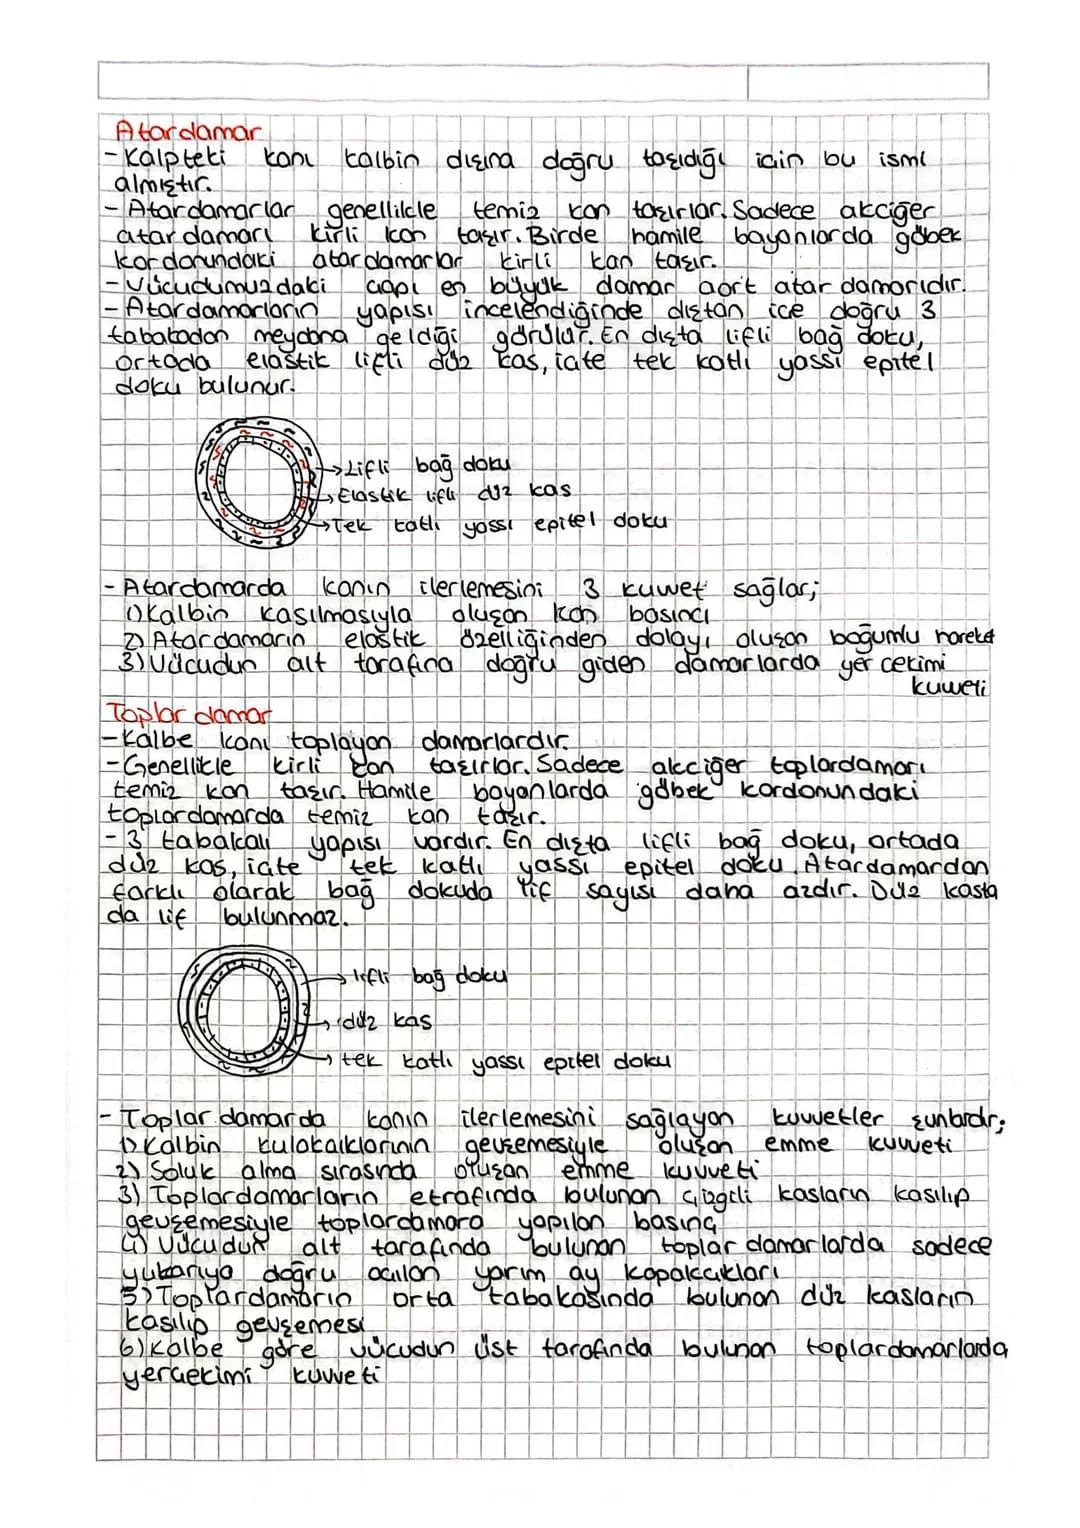 Atardamar
- Kalpteki kanı kalbin dışına doğru taşıdığı için bu ismi
almıştır.
- Atardamarlar genellikle temiz kan taşırlar. Sadece akciğer
atardamarı kirli kan taşır. Birde hamile bayanlarda göbek
kordonundaki atardamarlar kirli kan taşır.
- Vücudumuzdaki çapı en büyük damar aort atardamarıdır.
- Atardamarların yapısı incelendiğinde dıştan içe doğru 3
tabakadan meydana geldiği görülür. En dışta lifli bağ doku,
ortada elastik lifli düz kas, içte tek katlı yassı epitel
doku bulunur.
→Lifli bağ doku
→Elastik lifli düz kas
→Tek katlı yassı epitel doku
- Atardamarda kanın ilerlemesini 3 kuvvet sağlar;
1) Kalbin kasılmasıyla oluşan kan basıncı
2) Atardamarın elastik özelliğinden dolayı oluşan boğumlu hareket
3) Vücudun alt tarafına doğru giden damarlarda yer çekimi
kuvveti
Toplar damar
- Kalbe kanı toplayan damarlardır.
- Genellikle kirli kan taşırlar. Sadece akciğer toplardamarı
temiz kan taşır. Hamile bayanlarda göbek kordonundaki
toplardamarda temiz kan taşır.
- 3 tabakalı yapısı vardır. En dışta lifli bağ doku, ortada
düz kas, içte tek katlı yassı epitel doku. Atardamardan
farklı olarak bağ dokuda lif sayısı daha azdır. Düz kasta
da lif bulunmaz.
→ lifli bağ doku
→ düz kas
→ tek katlı yassı epitel doku
- Toplar damarda kanın ilerlemesini sağlayan kuvvetler şunlardır;
1) Kalbin kulakçıklarının gevşemesiyle oluşan emme kuvveti
2) Soluk alma sırasında oluşan emme kuvveti
3) Toplardamarların etrafında bulunan çizgili kasların kasılıp
gevşemesiyle toplardamara yapılan basınç
4) Vücudun alt tarafında bulunan toplar damarlarda sadece
yukarıya doğru açılan yarım ay kapakçıkları
5) Toplardamarın orta tabakasında bulunan düz kasların
kasılıp gevşemesi
6) Kalbe göre vücudun üst tarafında bulunan toplardamarlarda
yerçekimi kuvveti